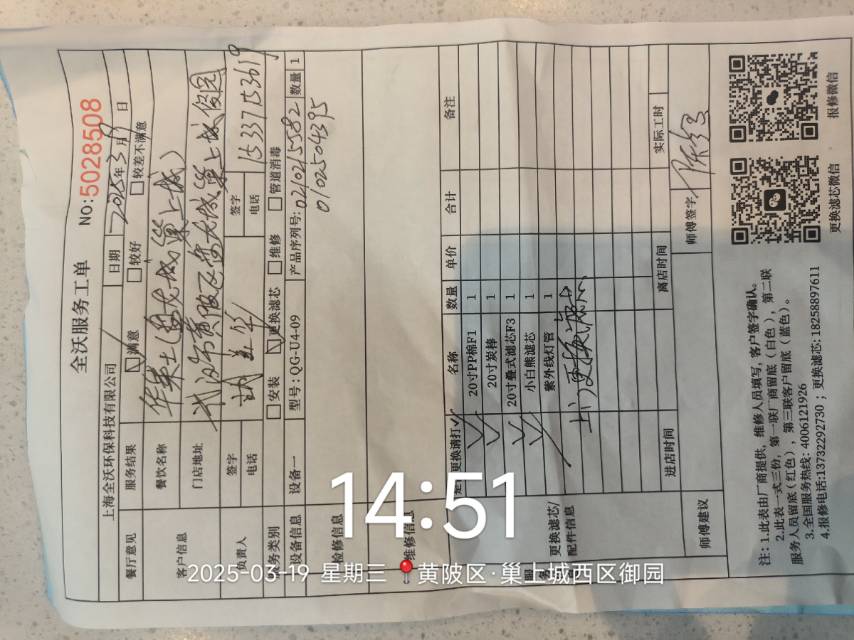 全沃服务工单
NO:5028508
上海全沃环保科技有限公司 日期 2025年3月19日
餐厅意见 服务结果 满意 较好 较差不满意
客户信息 餐饮名称
门店地址
负责人 签字 签字
电话 电话 15337153619
服务类别 安装 更换滤芯 维修 管道消毒
设备信息 设备一 型号: QG-U4-09 产品序列号: 数量 1
0102504395
检修信息
维修信息
更换滤芯/配件信息 更换请打✓ 名称 数量 单价 合计 备注
20寸PP棉F1 1
20寸炭棒 1
20寸叠式滤芯F3 1
小白熊滤芯 1
紫外线灯管 1
上门更换滤芯
进店时间 离店时间 实际工时
师傅建议 师傅签字
注: 1.此表由厂商提供, 维修人员填写, 客户签字确认。
2.此表一式三份, 第一联厂商留底(白色), 第二联
服务人员留底(红色), 第三联客户留底(蓝色)。
3.全国服务热线: 4006121926
4.报修电话:13732292730 ; 更换滤芯: 18258897611
更换滤芯微信 报修微信
14:51
2025-03-19 星期三 黄陂区·巢上城西区御园